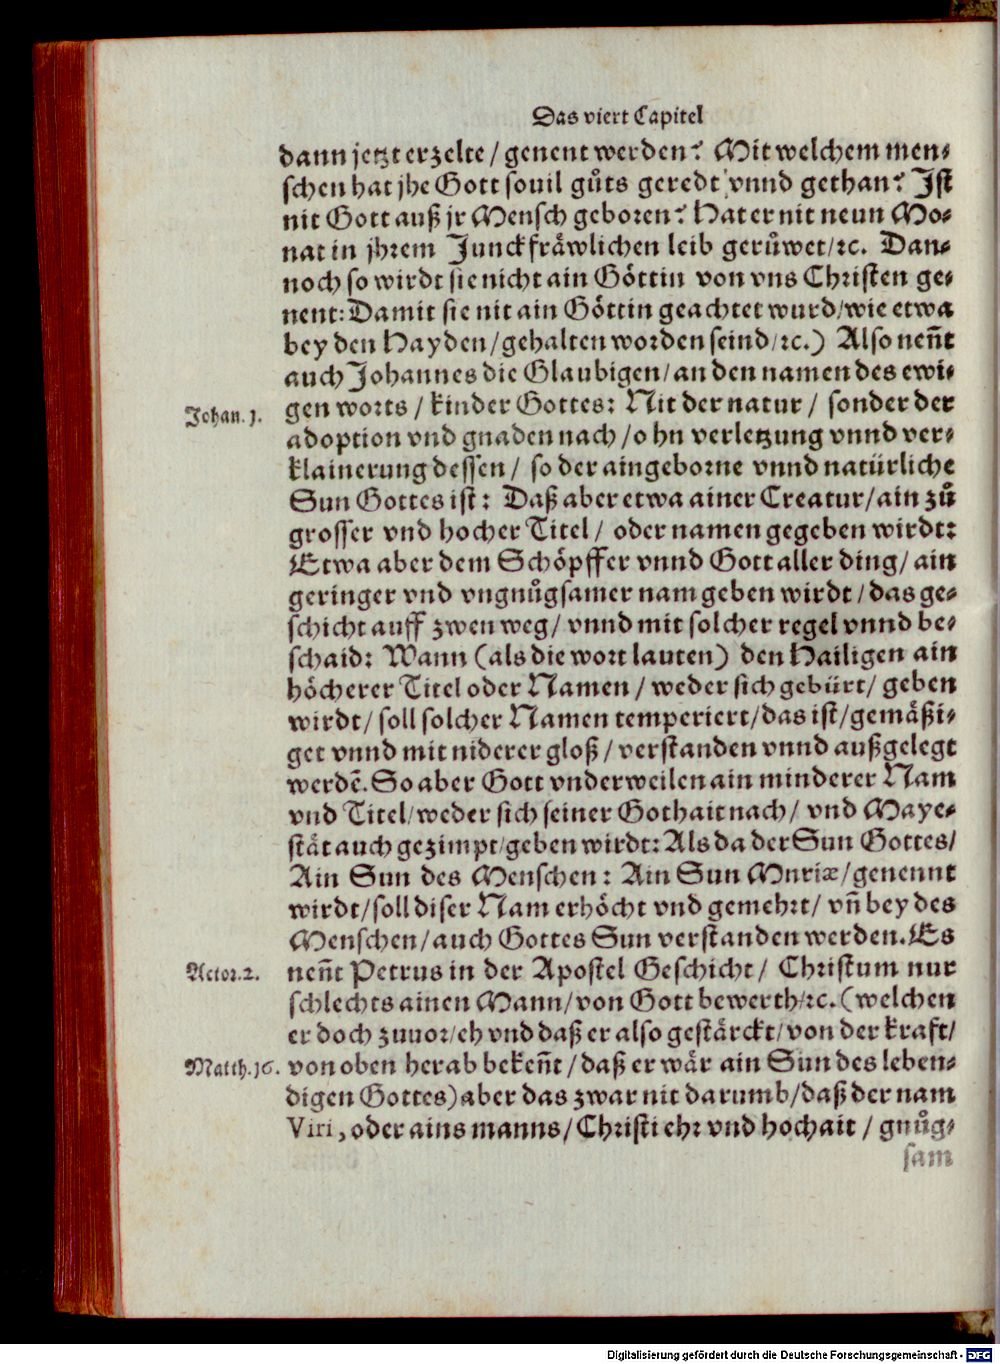 Das viert Capitel
dann jetzt erzelte / genent werden? Mit welchem men⸗
schen hat jhe Gott souil gůts geredt vnnd gethan? Jst
nit Gott auß jr Mensch geboren? Hat er nit neun Mo⸗
nat in jhrem Junckfräwlichen leib gerůwet/ꝛc. Dan⸗
noch so wirdt sie nicht ain Göttin von vns Christen ge⸗
nent: Damit sie nit ain Göttin geachtet wurd/wie etwa
bey den Hayden/gehalten worden seind/ꝛc.) Also neñt
auch Johannes die Glaubigen/an den namen des ewi⸗
Johan. 1.
gen worts / kinder Gottes: Nit der natur / sonder der
adoption vnd gnaden nach/ohn verletzung vnnd ver⸗
klainerung dessen / so der aingeborne vnnd natürliche
Sun Gottes ist: Daß aber etwa ainer Creatur/ain zů
grosser vnd hocher Titel / oder namen gegeben wirdt:
Etwa aber dem Schöpffer vnnd Gott aller ding/ ain
geringer vnd vngnůgsamer nam geben wirdt / das ge⸗
schicht auff zwen weg/ vnnd mit solcher regel vnnd be⸗
schaid: Wann (als die wort lauten) den Hailigen ain
höcherer Titel oder Namen / weder sich gebürt/ geben
wirdt/ soll solcher Namen temperiert/das ist/gemäßi⸗
get vnnd mit niderer gloß / verstanden vnnd außgelegt
werdẽ. So aber Gott vnderweilen ain minderer Nam
vnd Titel/weder sich seiner Gothait nach/ vnd Maye⸗
stät auch gezimpt/geben wirdt: Als da der Sun Gottes/
Ain Sun des Menschen: Ain Sun Mnriæ/genennt
wirdt/soll diser Nam erhöcht vnd gemehrt/ vñ bey des
Menschen/auch Gottes Sun verstanden werden. Es
Actor. 2.
neñt Petrus in der Apostel Geschicht / Christum nur
schlechts ainen Mann/von Gott bewerth/ꝛc. (welchen
er doch zuuor/eh vnd daß er also gestärckt/von der kraft/
Matth. 16.
von oben herab bekeñt / daß er wär ain Sun des leben⸗
digen Gottes) aber das zwar nit darumb/daß der nam
Viri, oder ains manns/Christi ehr vnd hochait / gnůg⸗
sam
Digitalisierung gefördert durch die Deutsche Forschungsgemeinschaft - DFG